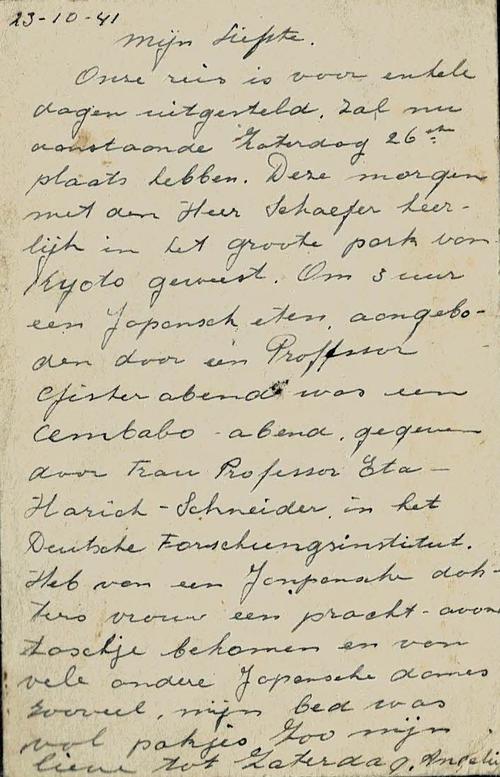 23-10-41
Mijn Liefste.
Onze reis is voor enkele
dagen uitgesteld, zal nu
aanstaande Zaterdag 26ste
plaats hebben. Deze morgen
met den Heer Schaefer heer-
lijk in het groote park van
Kyoto geweest. Om 3 uur
een Japansch eten, aangebo-
den door een Proffssor
Gister abend was een
Cembabo - abend, gegeven
door Frau Professor Eta -
Harich - Schneider, in het
Deutsche Forschungsinstitut.
Heb van een Janpansche dok-
ters vrouw een pracht - avond
taschje bekomen en van
vele andere Japansche dames
zooveel, mijn bed was
vol pakjes Zoo mijn
lieve tot Zaterdag.